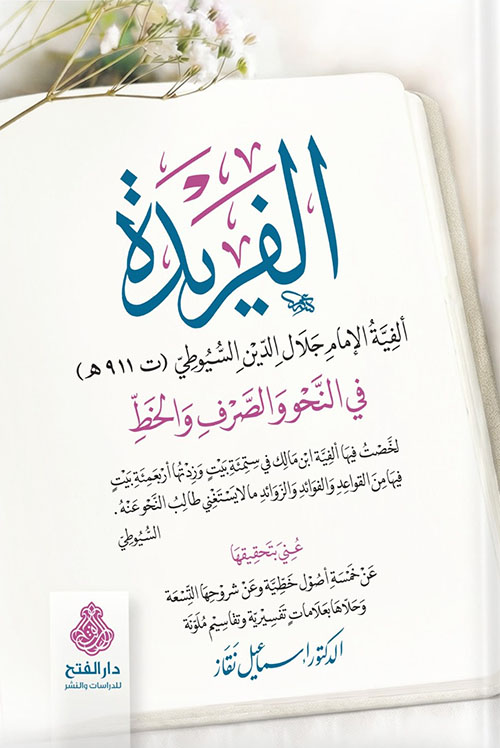 الفَرِيْدَة
ألفِيَّةُ الإمامِ جَلَالِ الدِّيْنِ السُّيُوطِيّ (ت ٩١١ هـ)
في النَّحْوِ وَالصَّرْفِ وَالخَطِّ
لخَّصْتُ فيهَا ألفِيَّة ابن مَالِك في سِتِّمِئَةِ بَيْتٍ وَزِدْتُها أربَعمِئَةِ بَيْتٍ
فيهَا مِنَ القَواعِدِ وَالفَوائِدِ وَالزَّوَائِدِ ما لا يَسْتَغْنِي طَالِبُ النَّحْوِ عَنْهُ .
السُّيُوطِيّ
عُنِيَ بتَحقِيقِهَا
عَنْ خَمْسَةِ أصُوْلٍ خَطِّيَّة وعَنْ شروحِهَا التِّسْعَة
وَحَلَّاهَا بعَلَامَاتٍ تَفْسِيْرِيَّة وتقَاسِيْم مُلَوَّنَة
الدكتور إسماعيل نقاز
دار الفتح
للدراسات والنشر